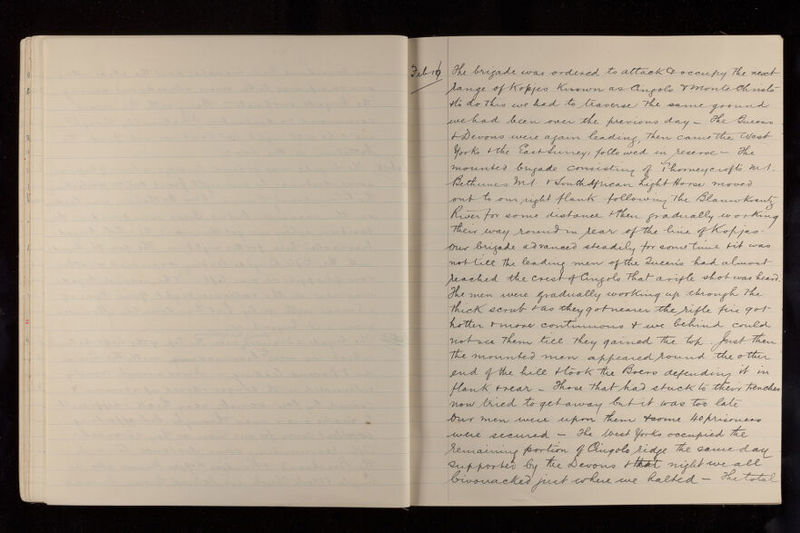 Feb 18 The brigade was ordered to attack & occupy the next
range of Kopjes known as Cingolo & Monte Christo
to do this we had to traverse the same ground
we had been over the previous day – The Queens
& Devons were again leading, then came the West
Yorks & the East Surreys followed in reserve – The
mounted brigade consisting of Thorneycrofts M.I.
Bethunes M.I. & South African Light Horse moved
out to our right flank following the Blauwkrantz
River for some distance & then gradually working
their way round in rear of the line of Kopjes.
Our brigade advanced steadily for some time & it was
not till the leading men of the Queens had almost
reached the crest of Cingolo that a rifle shot was heard.
The men were gradually working up through the
thick scrub & as they got nearer the rifle fire got
hotter & more continuous & we behind could
not see them till they gained the top. Just then
the mounted men appeared round the other
end of the hill & took the Boers defending it in
flank & rear – Those that had stuck to their trenches
now tried to get away but it was too late
Our men were upon them & some 40 prisoners
were secured – The West Yorks occupied the
remaining portion of Cingolo ridge the same day
supported by the Devons & that night we all
bivouacked just where we halted – The total